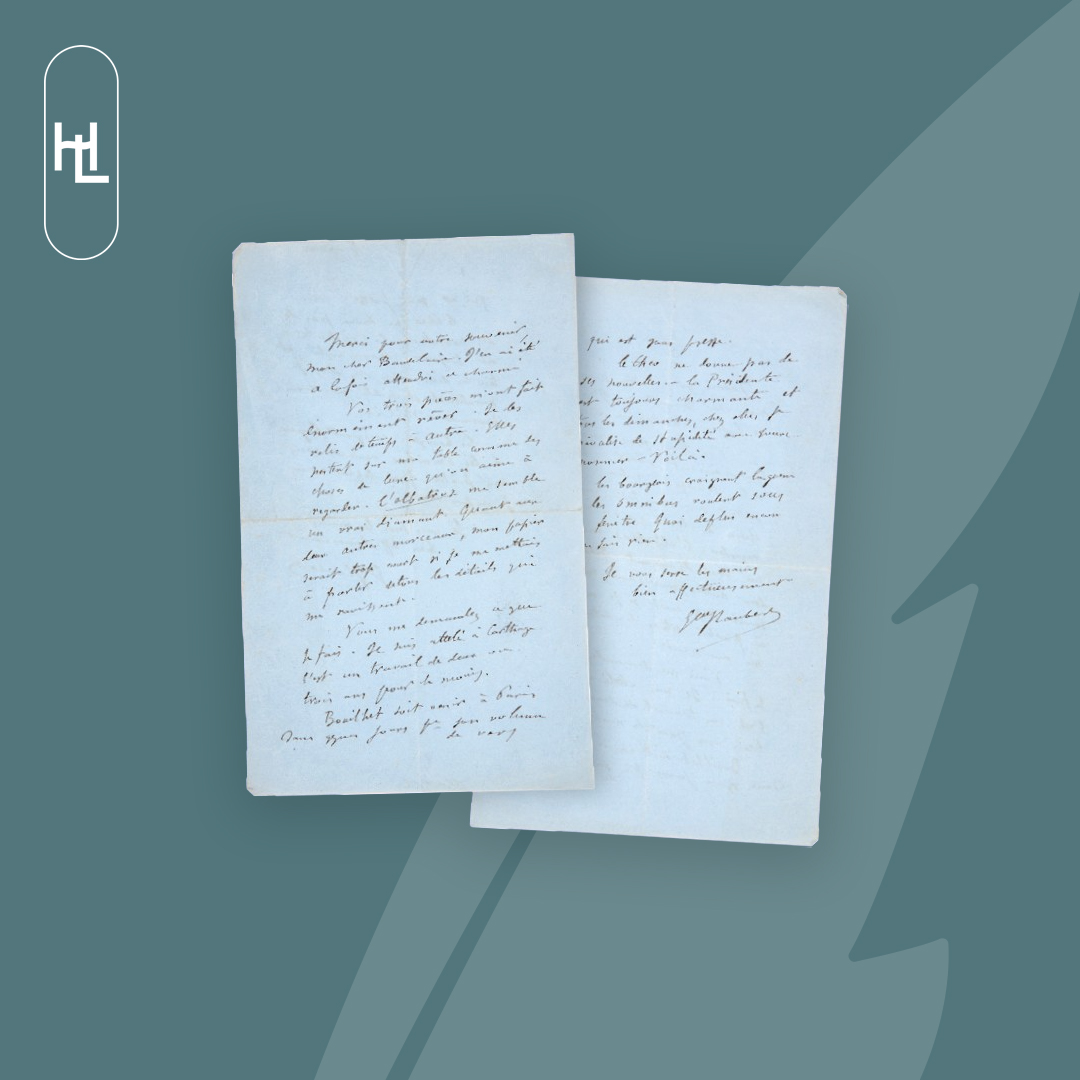 HL
Merci pour votre souvenir,
mon cher Baudelaire. J'en ai été
à la fois attendri & charmé.
Vos trois pièces m'ont fait
énormément rêver. Je les
relis de temps à autre. Elles
restent sur ma table comme des
choses de luxe qu'on aime à
regarder. L'albatros me semble
un vrai diamant. Quant aux
deux autres morceaux, mon papier
serait trop court si je me mettais
à parler de tous les détails qui
me ravissent.
Vous me demandez ce que
je fais. Je suis attelé à Carthage
C'est un travail de deux ou
trois ans pour le moins.
Bouilhet doit venir à Paris
dans qques jours pr son volume
de vers
qui est sous presse.
le Théo ne donne pas de
ses nouvelles. — la Présidente
est toujours charmante et
tous les dimanches, chez elle, je
rivalise de stupidité avec
— Voilà.
les bourgeois craignent la guerre
les omnibus roulent sous
fenêtre Quoi de plus encore
sais rien.
Je vous serre les mains
bien affectueusement
Gve Flaubert